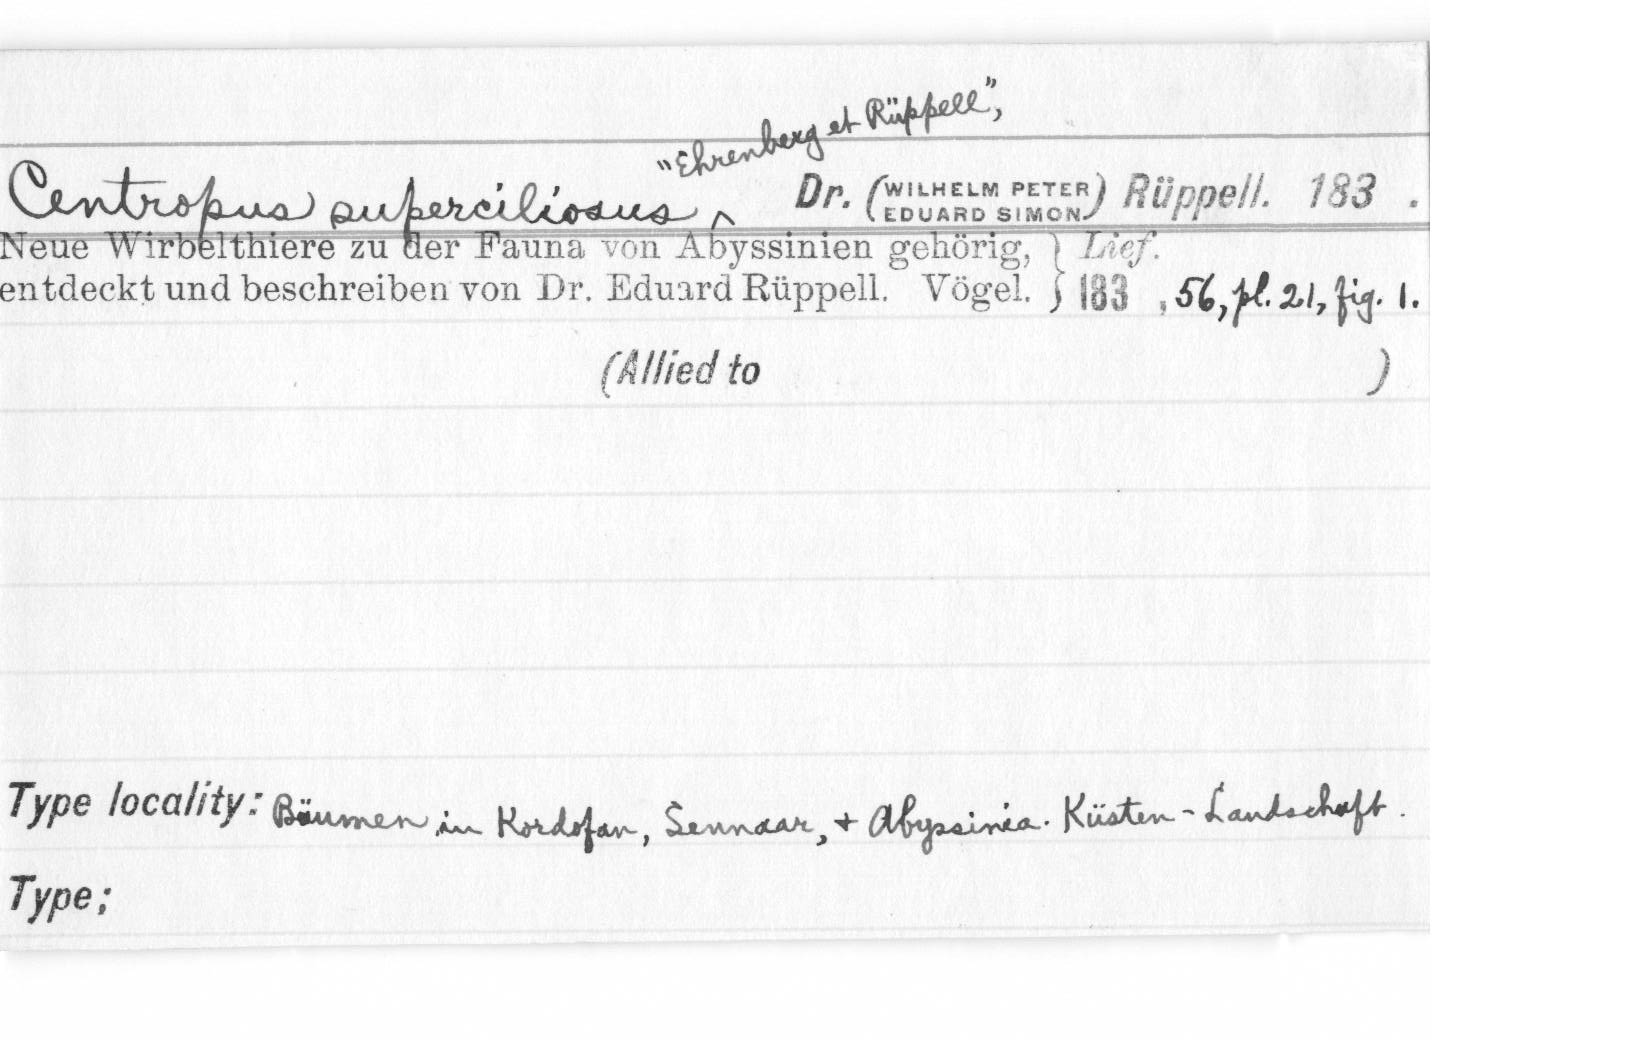 "Ehrenberg et Rüppell",
Centropus superciliosus ^ Dr. (WILHELM PETER EDUARD SIMON) Rüppell. 183 .
Neue Wirbelthiere zu der Fauna von Abyssinien gehörig, } Lief.
entdeckt und beschreiben von Dr. Eduard Rüppell. Vögel. } 183 , 56, pl. 21, fig. 1.
(Allied to )
Type locality: Bäumen in Kordofan, Sennaar, + Abyssinia. Küsten-Landschaft.
Type;